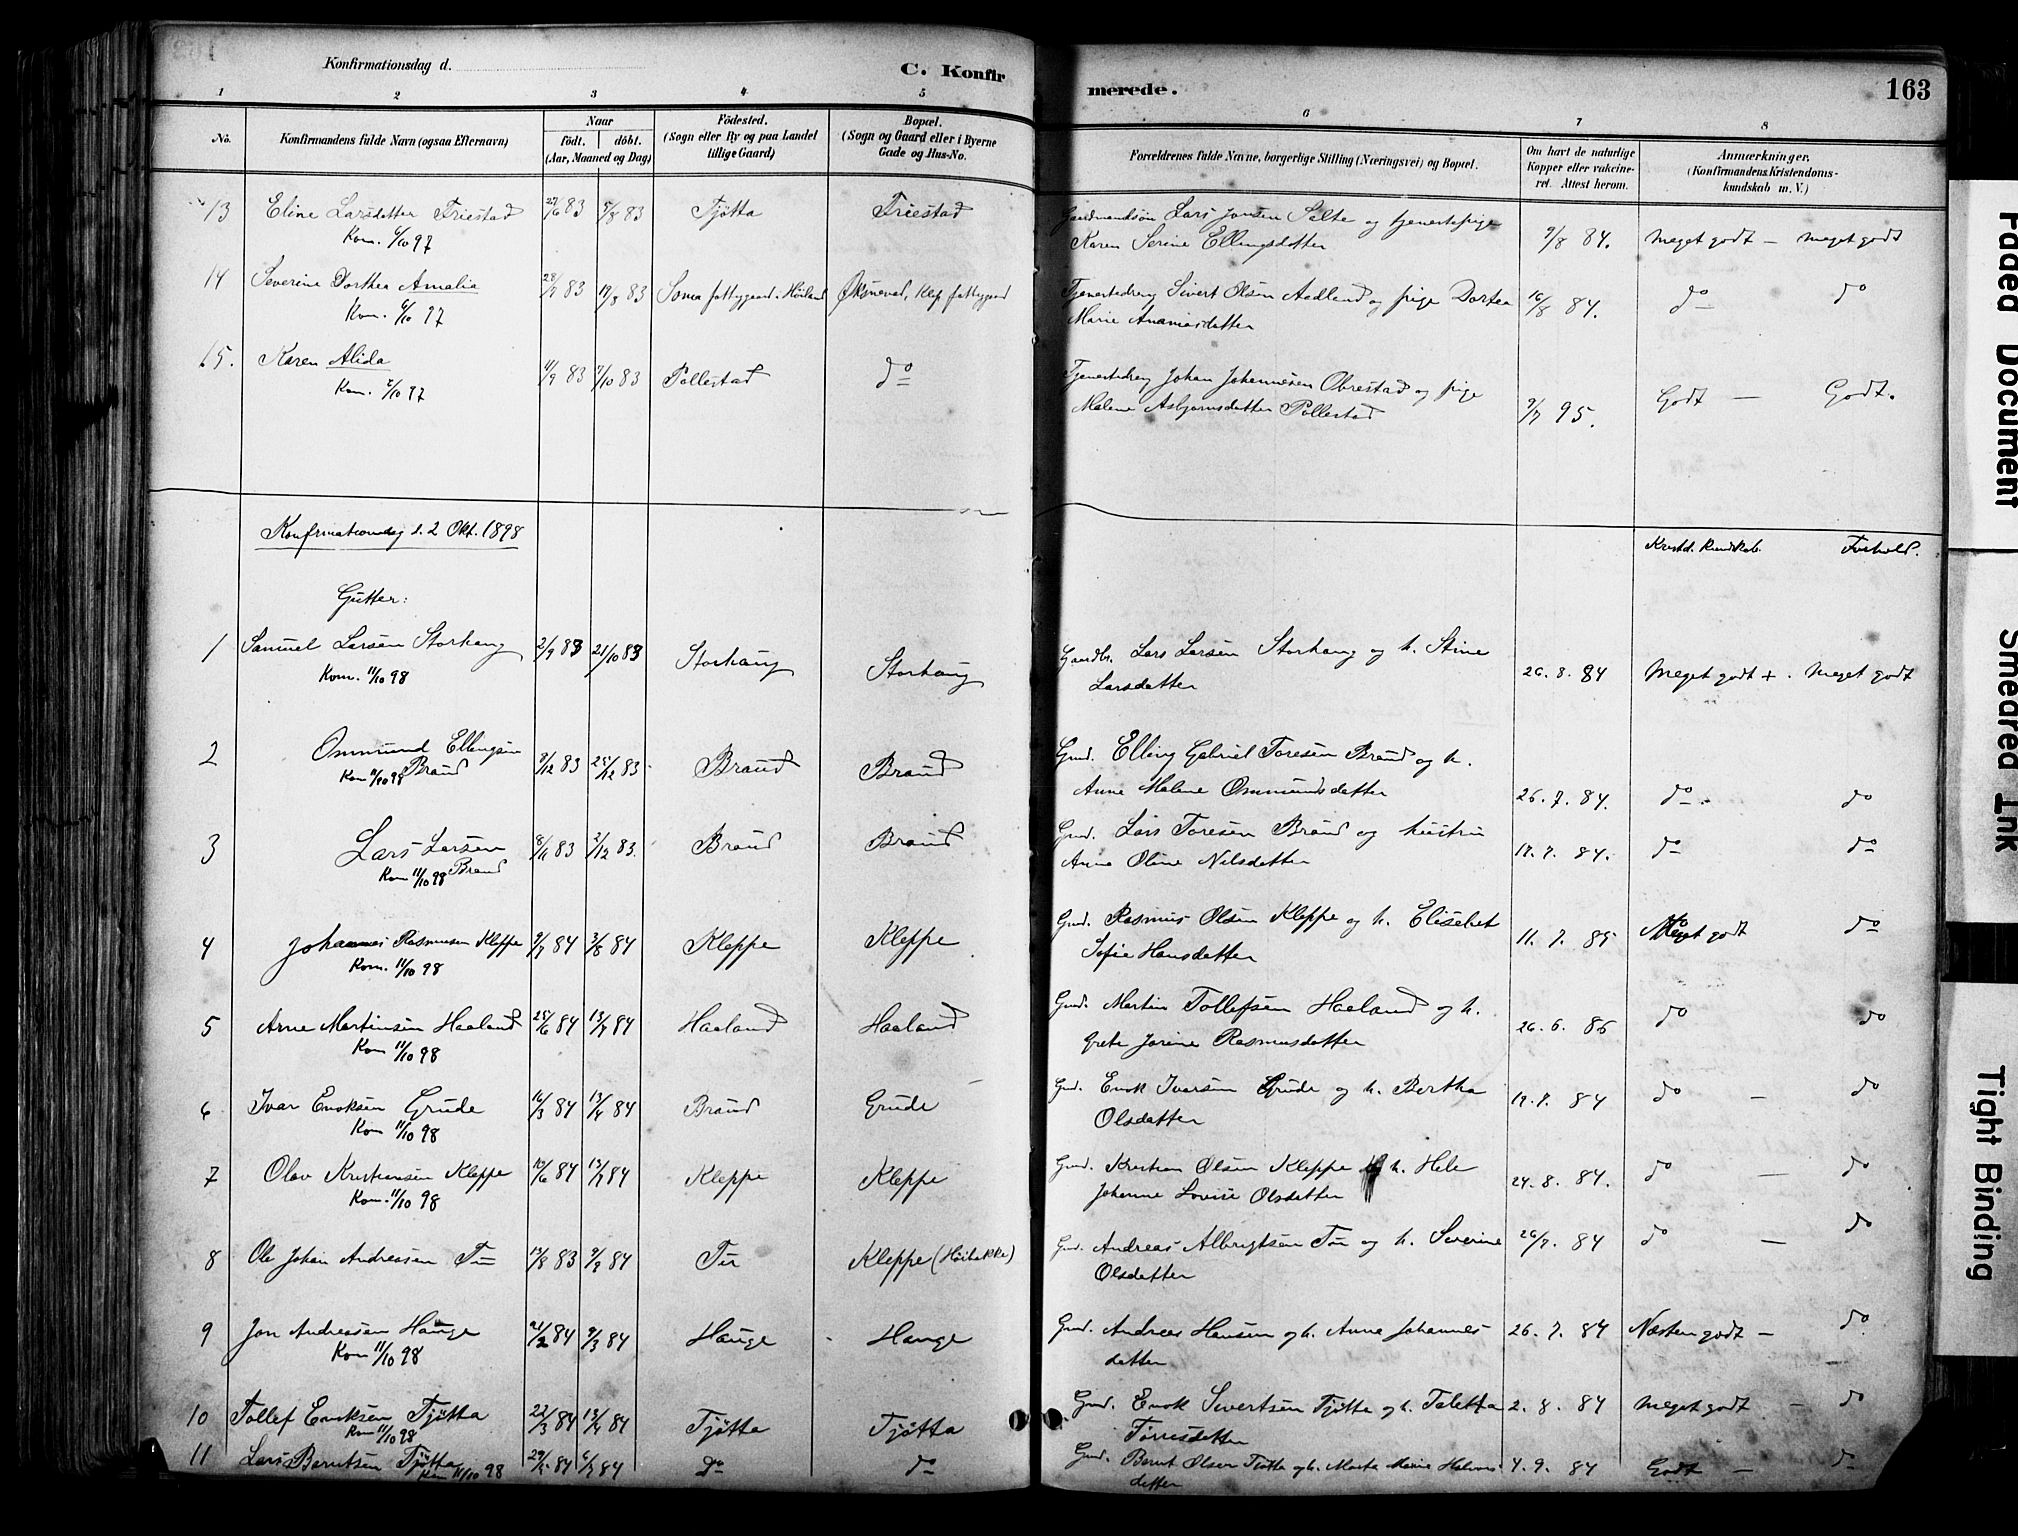 Konfirmationsdag d.
C. Konfir
merede.
163
1 2 3 4 5 6 7 8
No.
Konfirmandens fulde Navn (ogsaa Efternavn)
Naar
födt. döbt.
(Aar, Maaned og Dag)
Födested.
(Sogn eller By og paa Landet
tillige Gaard)
Bopæl.
(Sogn og Gaard eller i Byerne
Gade og Hus-No.
Forældrenes fulde Navne, borgerlige Stilling (Næringsvei) og Bopæl.
Om havt de naturlige
Kopper eller vakcine-
ret. Attest herom.
Anmærkninger.
(Konfirmandens Kristendoms-
kundskab m. V.)
13 Eline Larsdatter Friestad 27/6 83 5/8 83 Tjøtta Friestad Gaardmandsøn Lars Jonsen Salte og tjenestepige
Kom. 6/10 97 Karen Serine Ellingsdatter 9/8 84. Meget godt — meget godt
14 Severine Dorthea Amalia 28/7 83 19/8 83 Soma fattiggaard i Høiland Øksnevad, Klep fattiggaard Tjenestedreng Sivert Olsen Aadland og pige Dortea 16/8 84. do do
Kom. 6/10 97 Marie Ananiasdatter
15. Karen Alida 11/9 83 7/10 83 Pollestad do Tjenestedreng Johan Johannesen Obrestad og pige
Kom. 6/10 97 Malene Asbjørnsdatter Pollestad 9/7 95. Godt — Godt.
Konfirmationsdag d. 2 Okt. 1898
Kristd. kundskab. Forhold.
Gutter:
1 Samuel Larsen Storhaug 2/9 83 21/10 83 Storhaug Storhaug Gaardbr. Lars Larsen Storhaug og h. Stine
Kom. 11/10 98 Larsdatter 26. 8. 84 Meget godt + . Meget godt
2 Ommund Ellingsen 9/12 83 25/12 83 Braud Braud Gmd. Elling Gabriel Toresen Braud og h.
Kom 11/10 98 Braud Anne Malene Ommundsdatter 26. 7. 84. do. do
3 Lars Larsen 8/11 83 2/12 83. Braud Braud Gmd. Lars Toresen Braud og hustru
Kom 11/10 98 Braud Anna Oline Nilsdatter 17. 7. 84. do do
4 Johannes Rasmussen Kleppe 9/7 84 3/8 84 Kleppe Kleppe Gmd. Rasmus Olsen Kleppe og h. Elisebet
Kom. 11/10 98 Sofie Hansdatter 11. 7. 85 Meget godt do
5 Arne Martinsen Haaland 25/6 84 13/7 84 Haaland Haaland Gmd. Martin Tollefsen Haaland og h.
Kom 11/10 98 Grete Jorine Rasmusdatter 26. 6. 86 do do
6 Ivar Enoksen Grude 16/3 84 13/4 84 Braud Grude Gmd. Enok Ivarsen Grude og h. Bertha
Kom 11/10 98 Olsdatter 19. 7. 84 do — do
7 Olav Kristiansen Kleppe 10/6 84 13/7 84 Kleppe Kleppe Gmd. Kristian Olsen Kleppe h. Hele
Kom. 11/10 98 Johanne Lovise Olsdatter 24. 8. 84. do — do
8 Ole Johan Andreasen Tu 13/8 83 9/9 84 Tu Kleppe (Høibakke) Gmd. Andreas Albrigtsen Tu og h. Severine 26/7. 84 do — do
Olsdatter
9 Jon Andreasen Hauge 21/2 84 9/3 84 Hauge Hauge Gmd. Andreas Hansen og h. Anna Johannes 26. 7. 84 Næsten godt — do
Kom 11/10 98 datter
10 Tollef Enoksen Tjøtta 22/3 84 13/4 84 Tjøtta Tjøtta Gmd. Enok Sivertsen Tjøtta og h. Taletta 2. 8. 84 Meget godt — do
Kom 11/10 98 Torresdatter
11 Lars Berntsen Tjøtta 84 84 do do Gmd. Bernt Olsen Tjøtta og h. Marta Marie Halvors 4. 9. 84 Godt — do
Kom 11/10 98 datter
Faded Document
Smeared Ink
Tight Binding